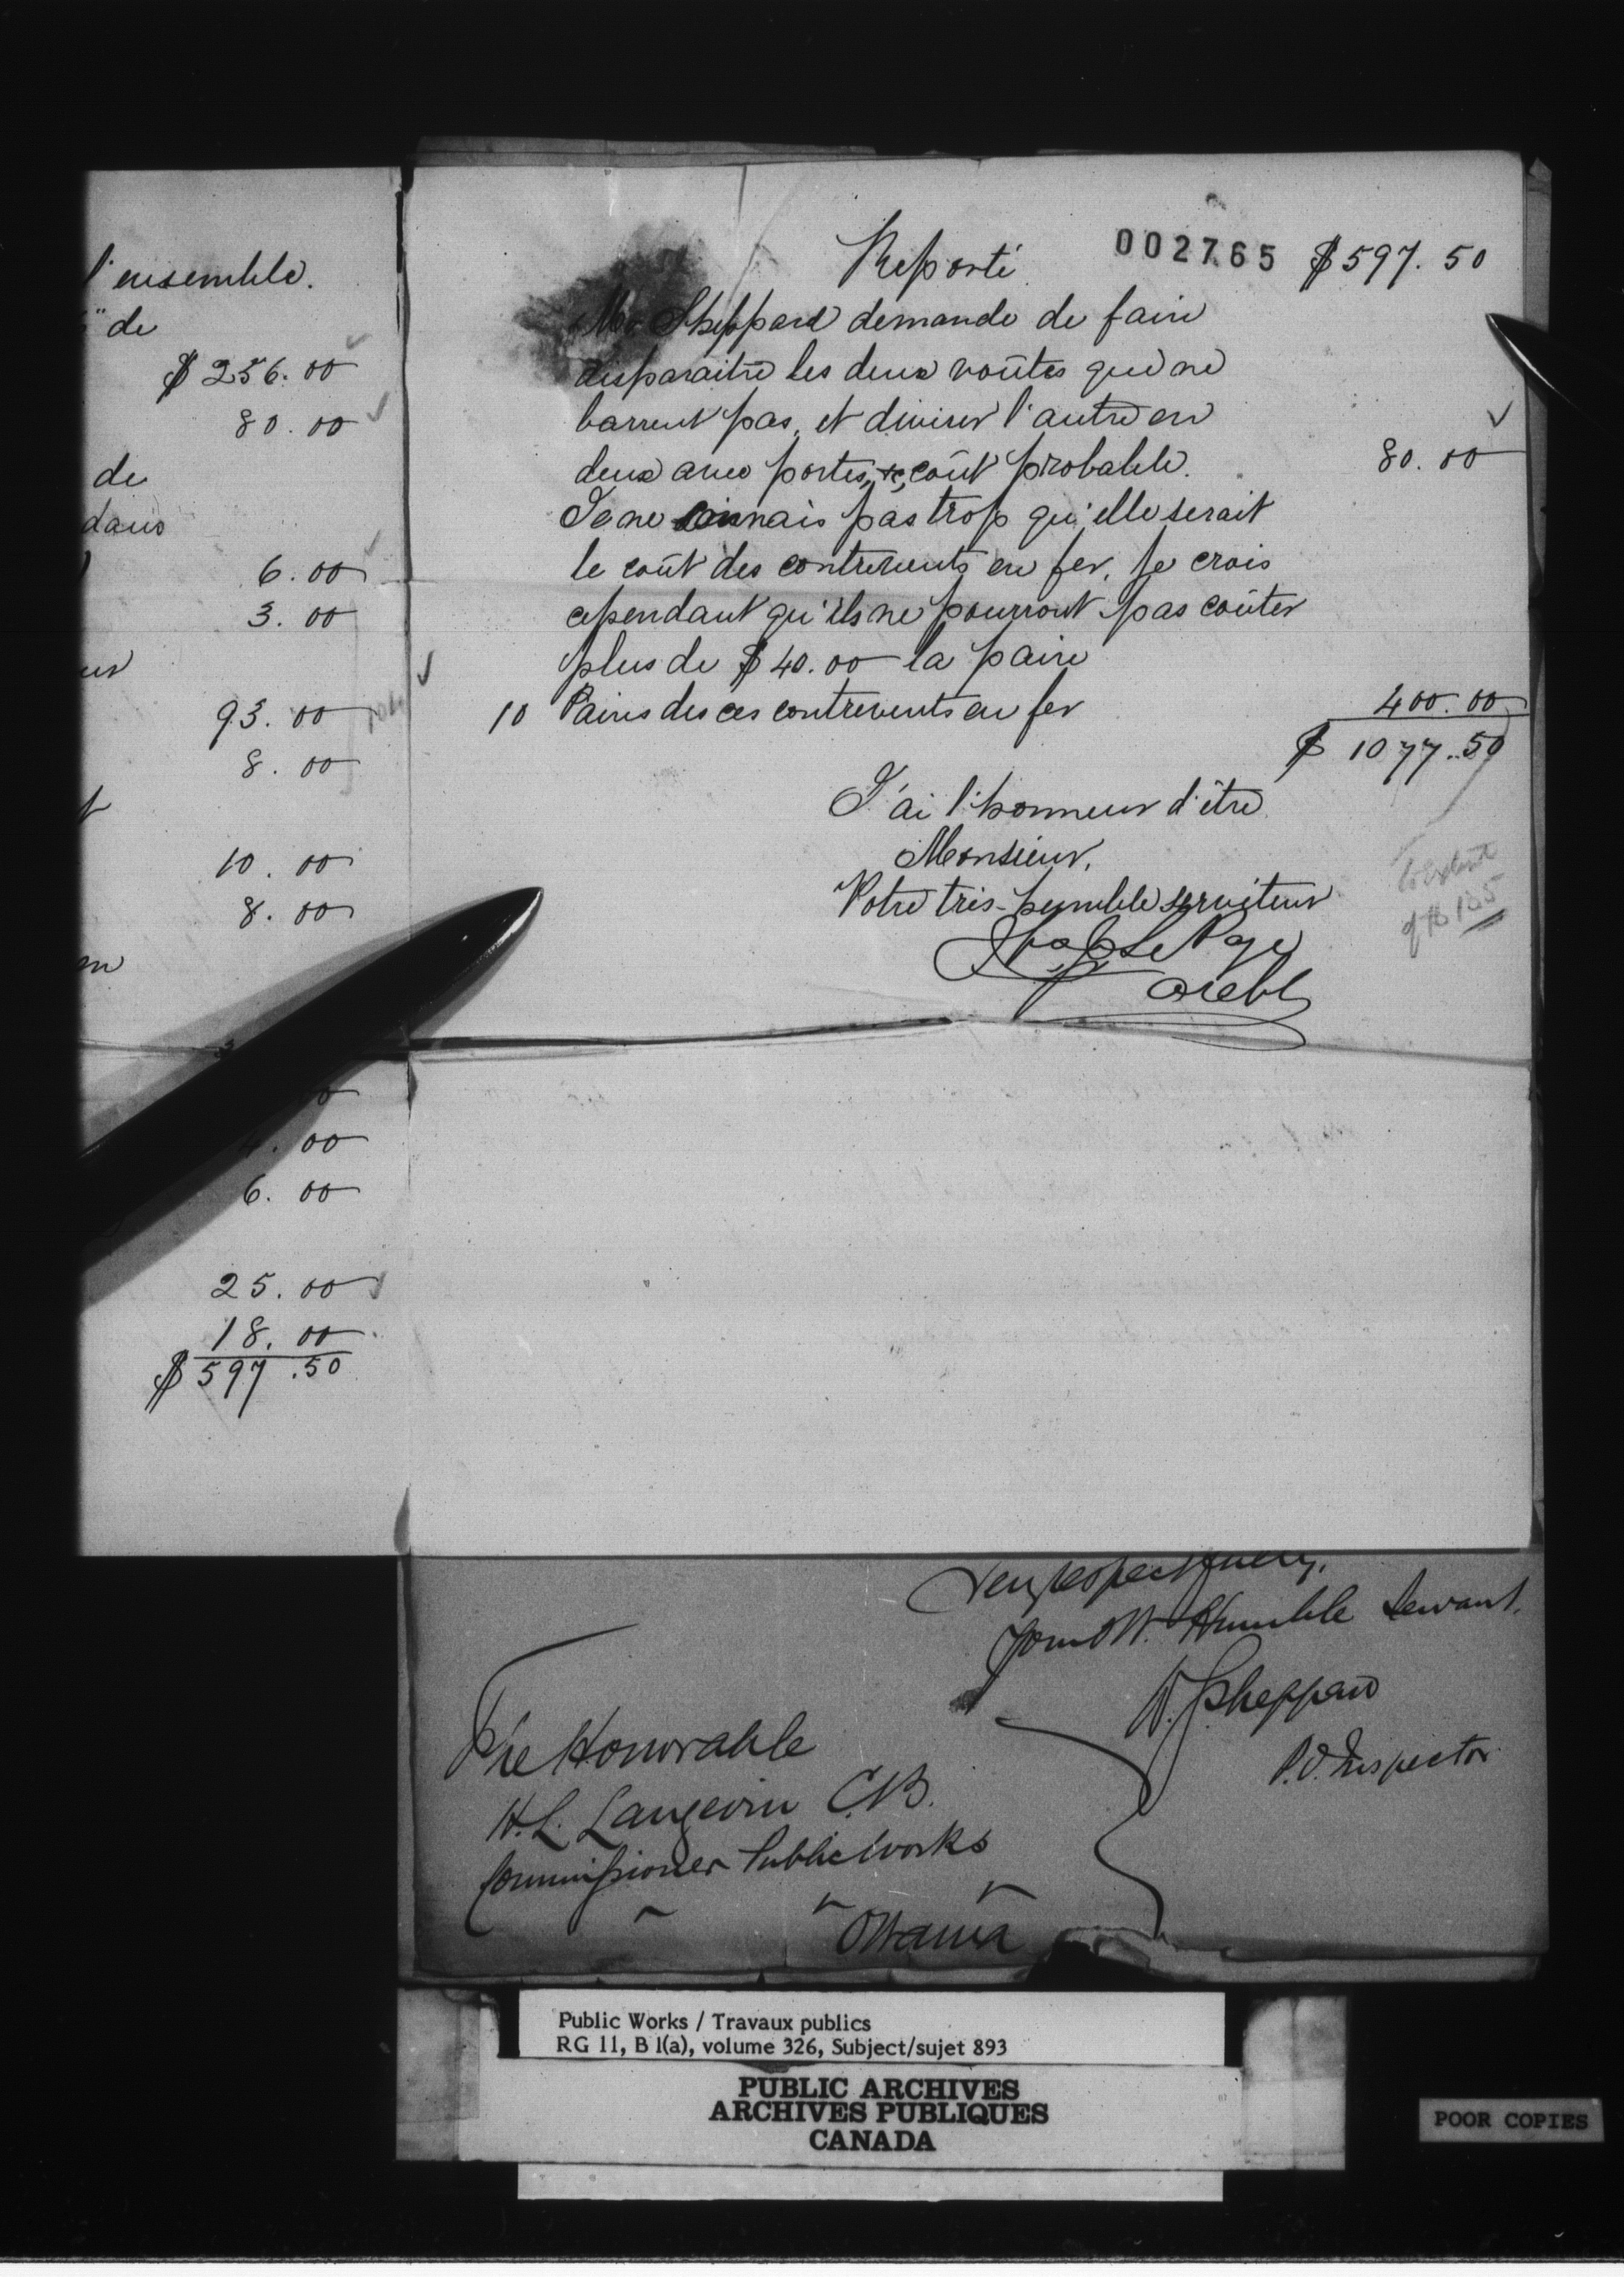 l'ensemble.
de
$256.00
80.00
de
dans
6.00
3.00
93.00
8.00
10.00
8.00
4.00
6.00
25.00
18.00
$597.50
Reporté 002765 $597.50
Mr Sheppard demande de faire
disparaitre les deux voûtes que ne
barrent pas, et diviser l'autre en
deux avec portes, &c, coût probable. 80.00
Je ne connais pas trop qu'elle serait
le coût des contrevents en fer, je crois
cependant qu'ils ne pourront pas coûter
plus de $40.00 la paire
10 Paires des ces contrevents en fer 400.00
$1077.50
J'ai l'honneur d'être
Monsieur,
Votre très-humble serviteur
Le Page
Archt
to extent
of $185
Very respectfully,
Your Ob't. Humble Servant.
W. Sheppard
P.O. Inspector
The Honorable
H. L. Langevin C.B.
Commissioner Public Works
Ottawa
Public Works / Travaux publics
RG 11, B 1(a), volume 326, Subject/sujet 893
PUBLIC ARCHIVES
ARCHIVES PUBLIQUES
CANADA
POOR COPIES